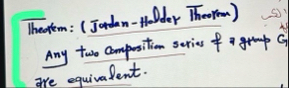 Theorem: (Jordan-Holder Theorem)
Any two Composition series of a group G
are equivalent.